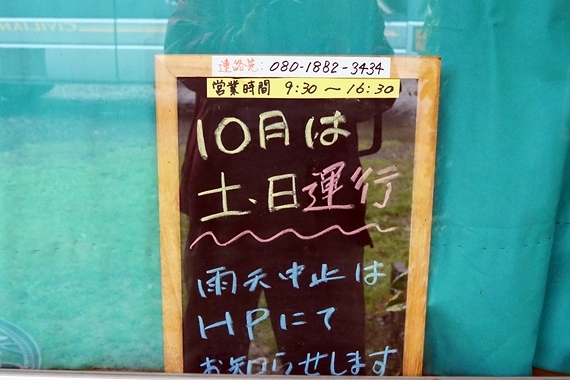 CIVILIAN
連絡先: 080-1882-3434
営業時間 9:30 〜 16:30
10月は
土・日運行
雨天中止は
HPにて
お知らせします